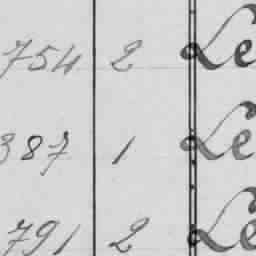 754 2 Le
387 1 Le
791 2 Le